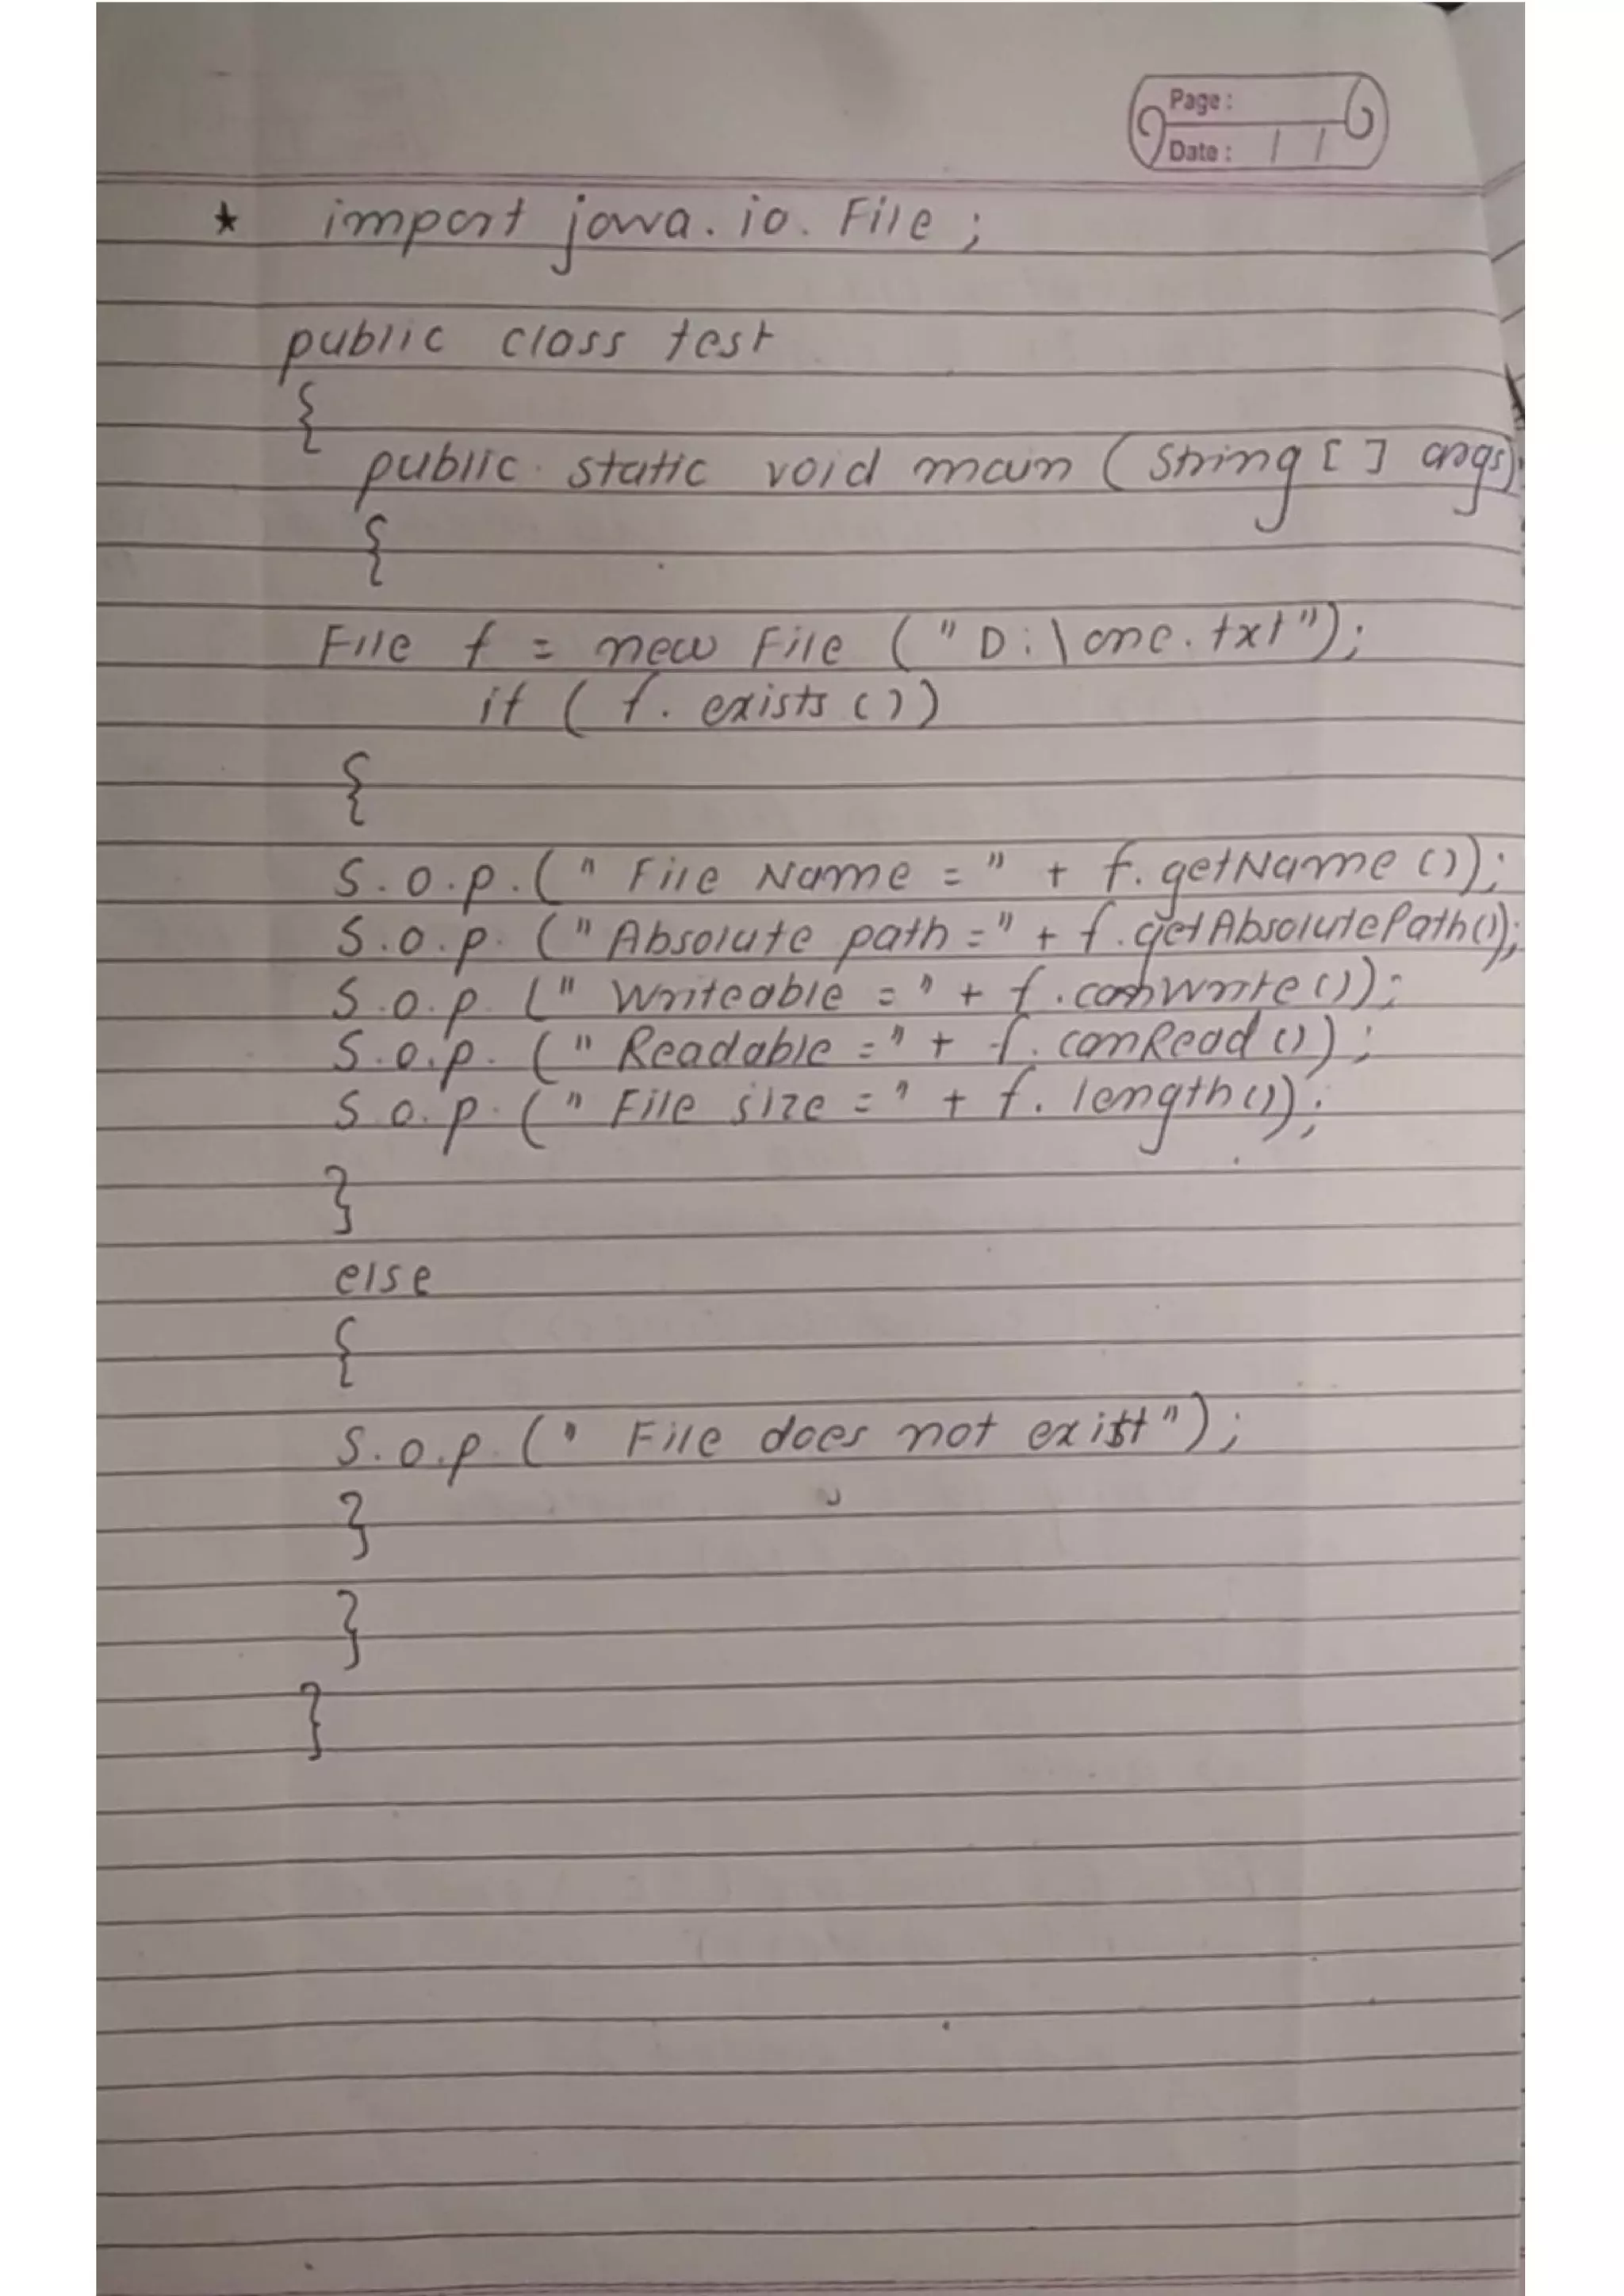 Page:
Date: / /
★ import java.io.File;
public class test
{
public static void main (String [] args)
{
File f = new File ("D:\one.txt");
if (f.exists())
{
S.o.p.(" File Name =" + f.getName ());
S.o.p. ("Absolute path =" + f.getAbsolutePath());
S.o.p. (" Writeable =" + f.canWrite());
S.o.p. (" Readable =" + f.canRead());
S.o.p. (" File size =" + f.length());
}
else
{
S.o.p. (" File does not exist");
}
}
}